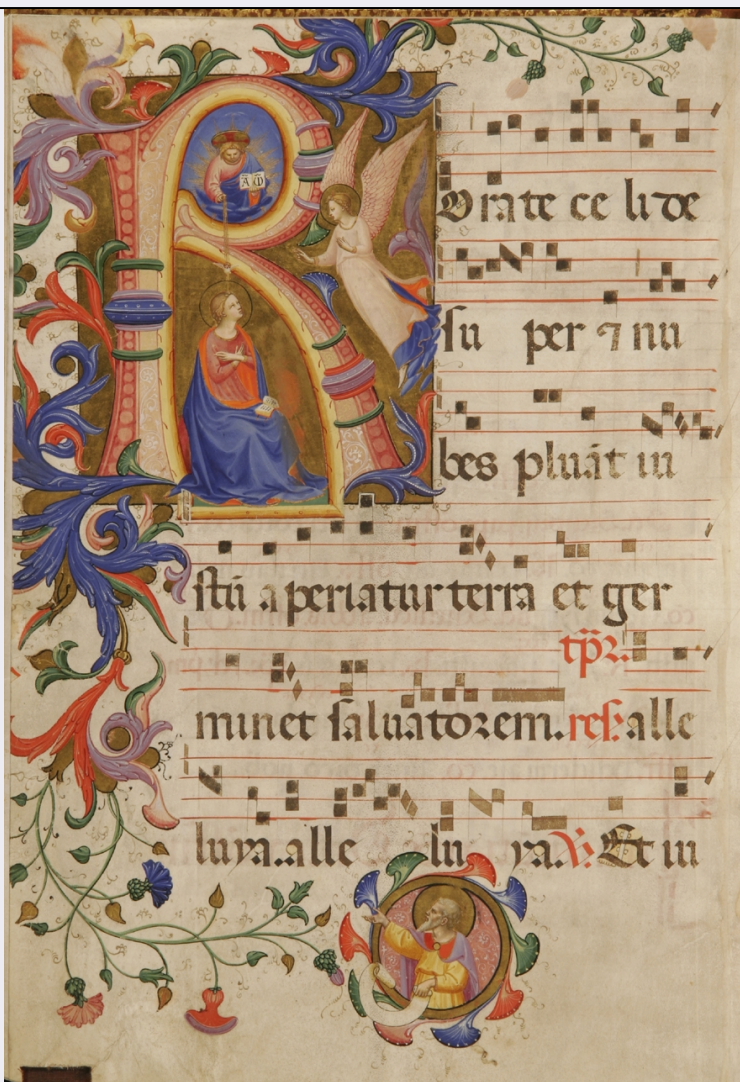 A ω
R
Orate ce li de
su per ⁊ nu
bes pluāt iu
stū a periatur terra et ger
tp̄ꝛ.
minet saluatoꝛem. res. alle
luya. alle lu ya. ℣. Et in